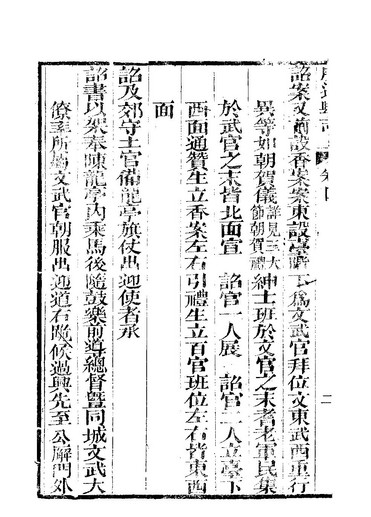 詔案又前設香案案東設臺階下爲文武官拜位文東武西重行
異等如朝賀儀詳見三大節朝賀禮紳士班於文官之末耆老軍民集
於武官之末皆北面宣 詔官一人展 詔官二人立臺下
西面通贊生立香案左右引禮生立百官班位左右皆東西
面
詔及郊守土官備龍亭旗仗出迎使者承
詔書以架奉陳龍亭內乘馬後隨鼓樂前導總督暨同城文武大
僚至所屬文武官朝服出迎道右跪候過興先至公廨門外